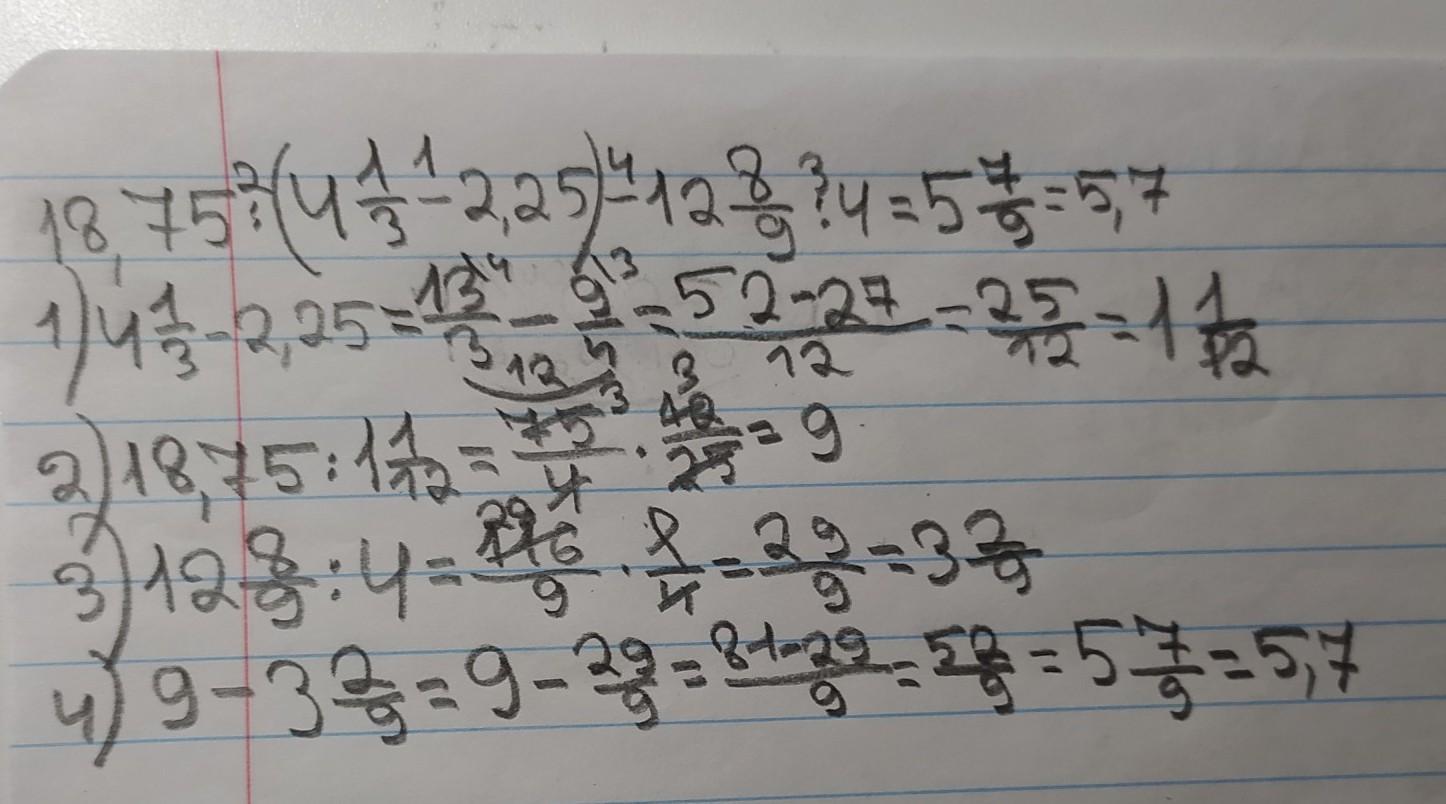 18,75 : (4 1/3 - 2,25) - 12 8/9 : 4 = 5 7/9 = 5,7
1) 4 1/3 - 2,25 = 13/3 - 9/4 = 52-27/12 = 25/12 = 1 1/12
2) 18,75 : 1 1/12 = 75/4 · 12/25 = 9
3) 12 8/9 : 4 = 116/9 · 1/4 = 29/9 = 3 2/9
4) 9 - 3 2/9 = 9 - 29/9 = 81-29/9 = 52/9 = 5 7/9 = 5,7